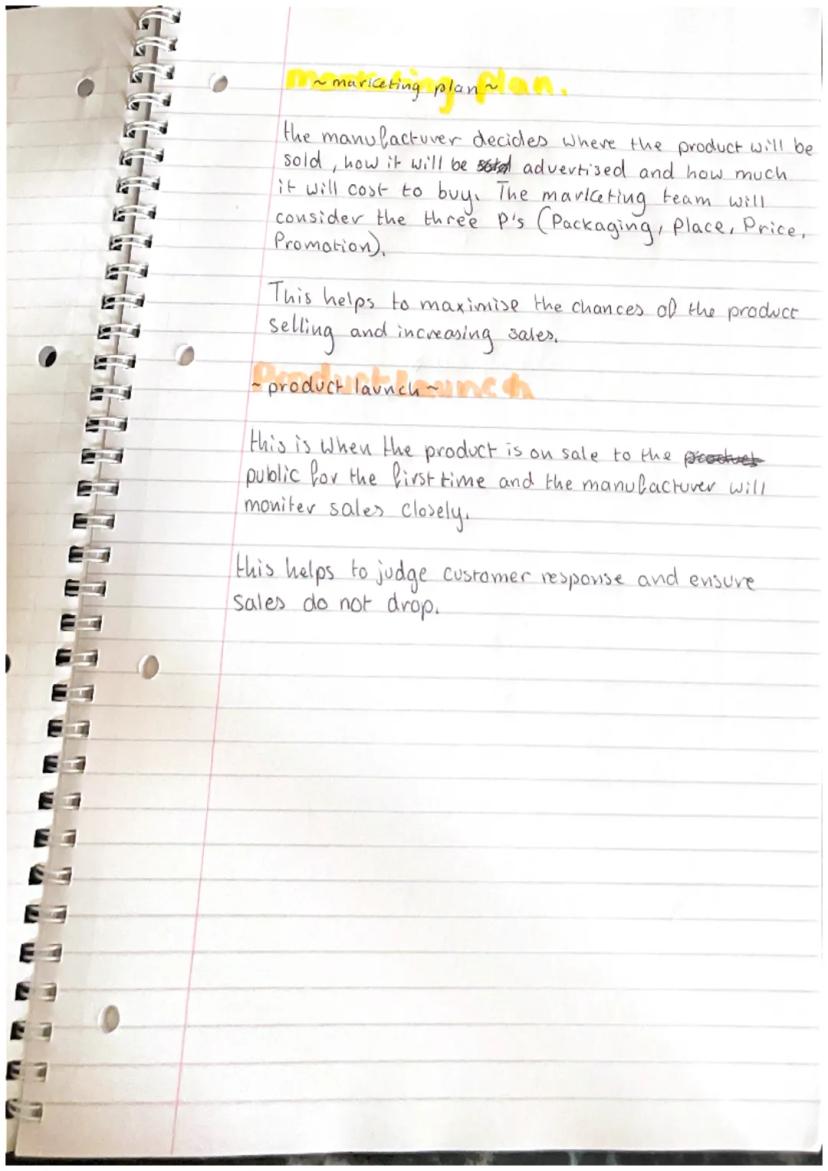 marketing plan.
~ marketing plan ~
the manufacturer decides where the product will be
sold, how it will be advertised and how much
it will cost to buy. The marketing team will
consider the three P's (Packaging, Place, Price,
Promotion).
This helps to maximise the chances of the product
selling and increasing sales.
Product launch
~ product launch ~
this is when the product is on sale to the product
public for the first time and the manufacturer will
moniter sales closely.
this helps to judge customer response and ensure
sales do not drop.